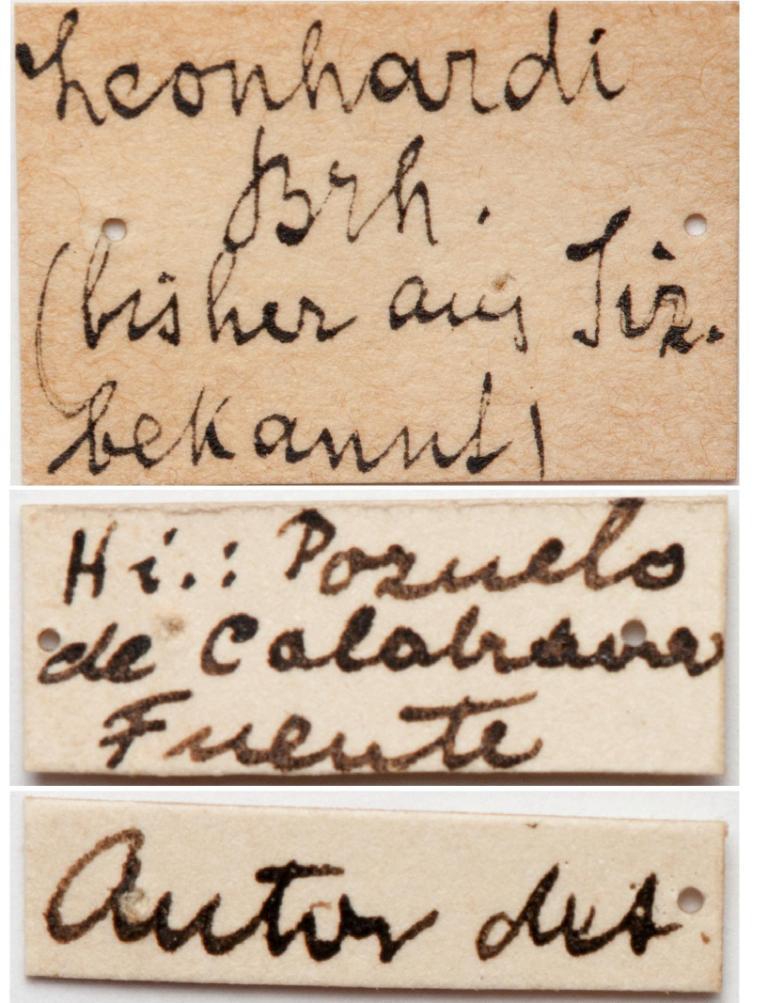 Leonhardi
Brh.
(bisher aus Siz.
bekannt)
Hi.: Pozuelo
de Calatrava
Fuente
Autor det.